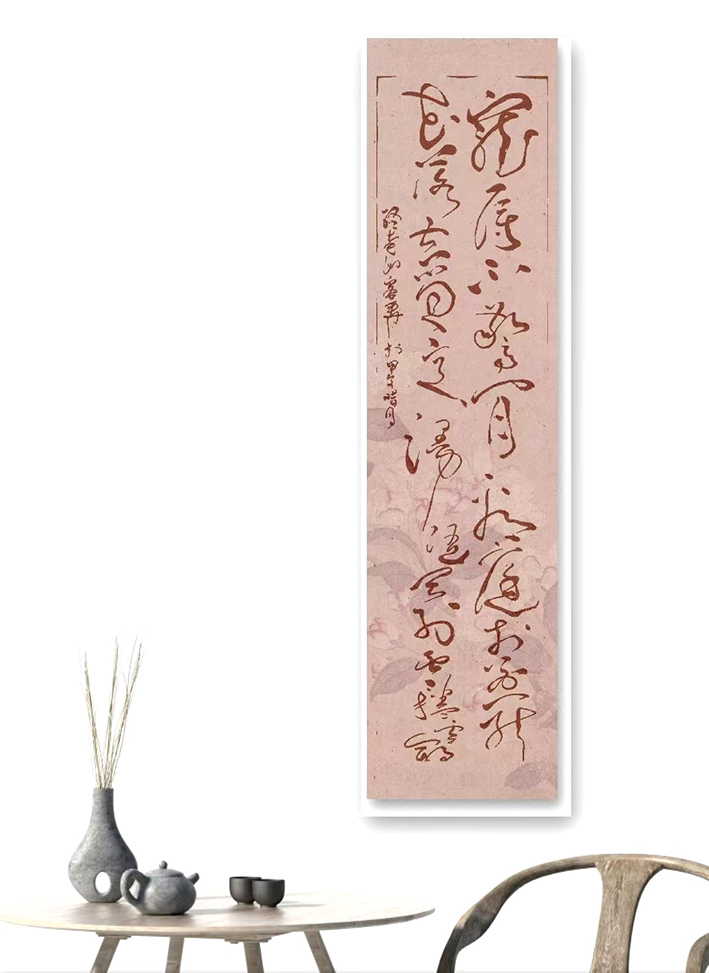 寵辱不驚閒看庭前花開
花落去留无意漫随天外雲捲雲舒
於甲午腊月